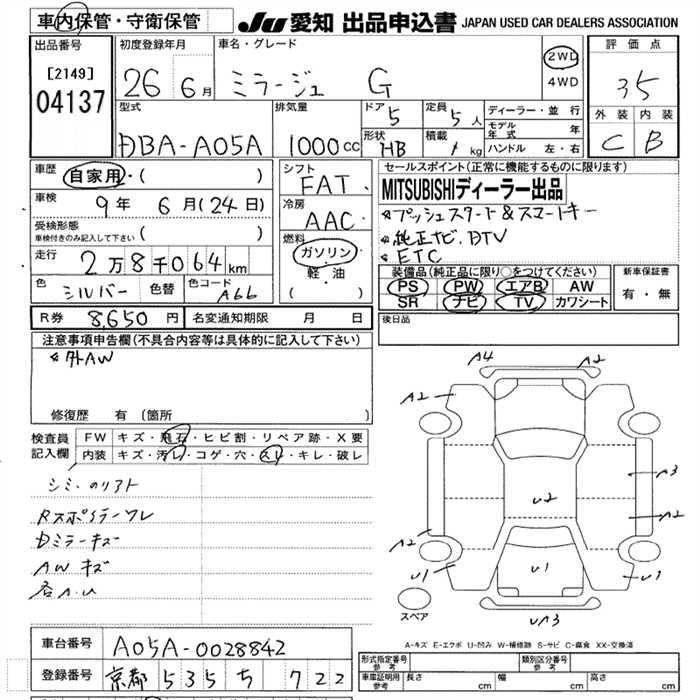 車内保管・守衛保管 JU 愛知 出品申込書 JAPAN USED CAR DEALERS ASSOCIATION
出品番号 初度登録年月 車名・グレード 2WD 評価点
[2149] 26 6月 ミラージュ G 4WD 35
04137 型式 排気量 ドア 5 定員 5人 ディーラー・並行 外装 内装
モデル年式 年
DBA-A05A 1000cc 形状 HB 積載 kg ハンドル 左・右 C B
車歴 自家用・( ) シフト FAT セールスポイント(正常に機能するものに限ります)
車検 9年 6月(24日) 冷房 AAC MITSUBISHIディーラー出品
受検形態 車検付きのみ記入して下さい ( ) プッシュスタート&スマートキー
燃料 ガソリン・軽油 ( ) 純正ナビ.DTV
走行 2万8千064km ETC
色 シルバー 色替 色コード A66 装備品(純正品に限り○をつけてください) 新車保証書
PS PW エアB AW 有・無
SR ナビ TV カワシート
R券 8,650円 名変通知期限 月 日 後日品
注意事項申告欄(不具合内容等は具体的に記入して下さい)
外AW
修復歴 有 (箇所 )
検査員記入欄 FW キズ・飛石・ヒビ割・リペア跡・X要
内装 キズ・汚レ・コゲ・穴・スレ・キレ・破レ
シミ.
Rスポイラーワレ
Dミラーキズ
AWキズ
各A.U
A4 A2
A2
A3
U2
A2
A2
U1 U1 U1
UA3
スペア
A-キズ E-エクボ U-凹み W-補修跡 S-サビ C-腐食 XX-交換済
車台番号 A05A-0028842
登録番号 京都 535 ち 722
形式指定番号 参考 類別区分番号 参考
車庫証明用 参考 長さ cm 幅 cm 高さ cm